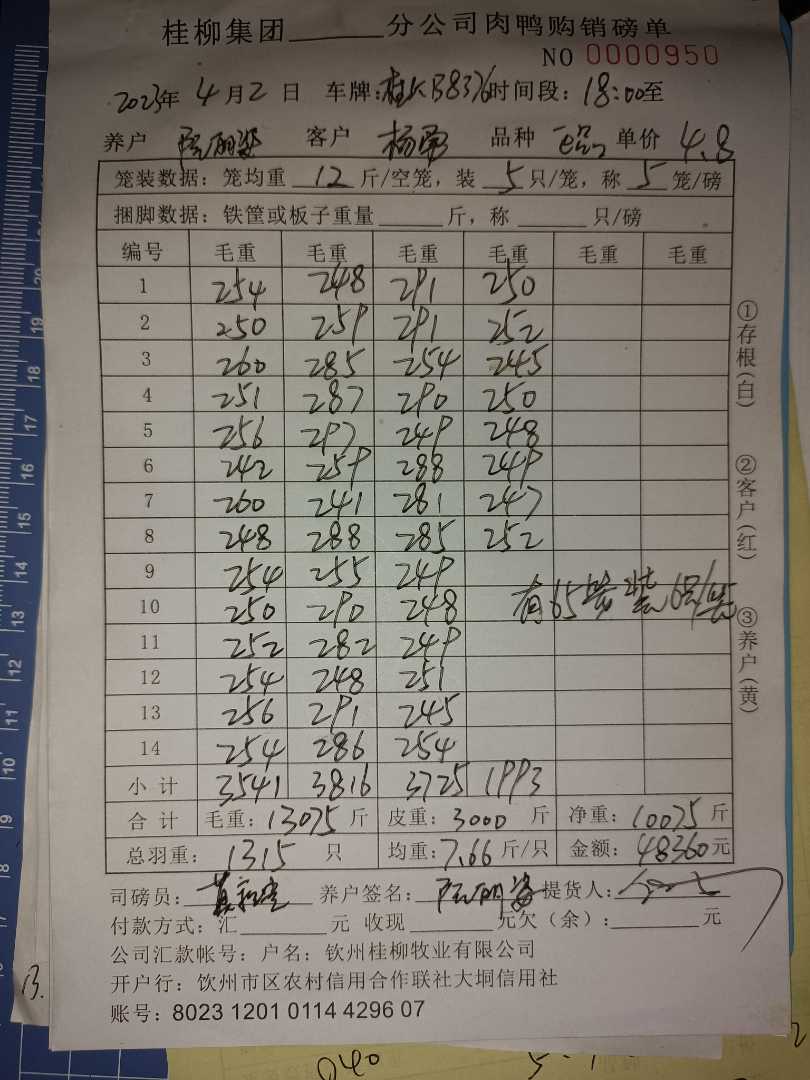 桂柳集团______分公司肉鸭购销磅单
NO 0000950
2023年 4月2日 车牌:桂KB8376 时间段: 18:00至
养户 客户 杨勇 品种 单价 4.8
笼装数据: 笼均重 12 斤/空笼, 装 5 只/笼, 称 5 笼/磅
捆脚数据: 铁筐或板子重量______斤, 称______只/磅
编号 毛重 毛重 毛重 毛重 毛重 毛重
1 254 248 291 250
2 250 259 291 252
3 260 285 254 245
4 251 287 290 250
5 256 297 249 248
6 242 259 288 249
7 260 241 281 247
8 248 288 285 252
9 254 255 249
10 250 290 248 有65笼装6只/笼
11 252 282 249
12 254 248 251
13 256 291 245
14 254 286 254
小计 3541 3816 3725 1993
合计 毛重: 13075 斤 皮重: 3000 斤 净重: 10075 斤
总羽重: 1315 只 均重: 7.66 斤/只 金额: 48360元
司磅员: 养户签名: 提货人:
付款方式: 汇______元 收现______元欠(余): ______元
公司汇款帐号: 户名: 钦州桂柳牧业有限公司
开户行: 钦州市区农村信用合作联社大垌信用社
账号: 8023 1201 0114 4296 07
①存根(白)
②客户(红)
③养户(黄)
20
19
18
17
16
15
14
13
12
11
10
9
8
13.
040